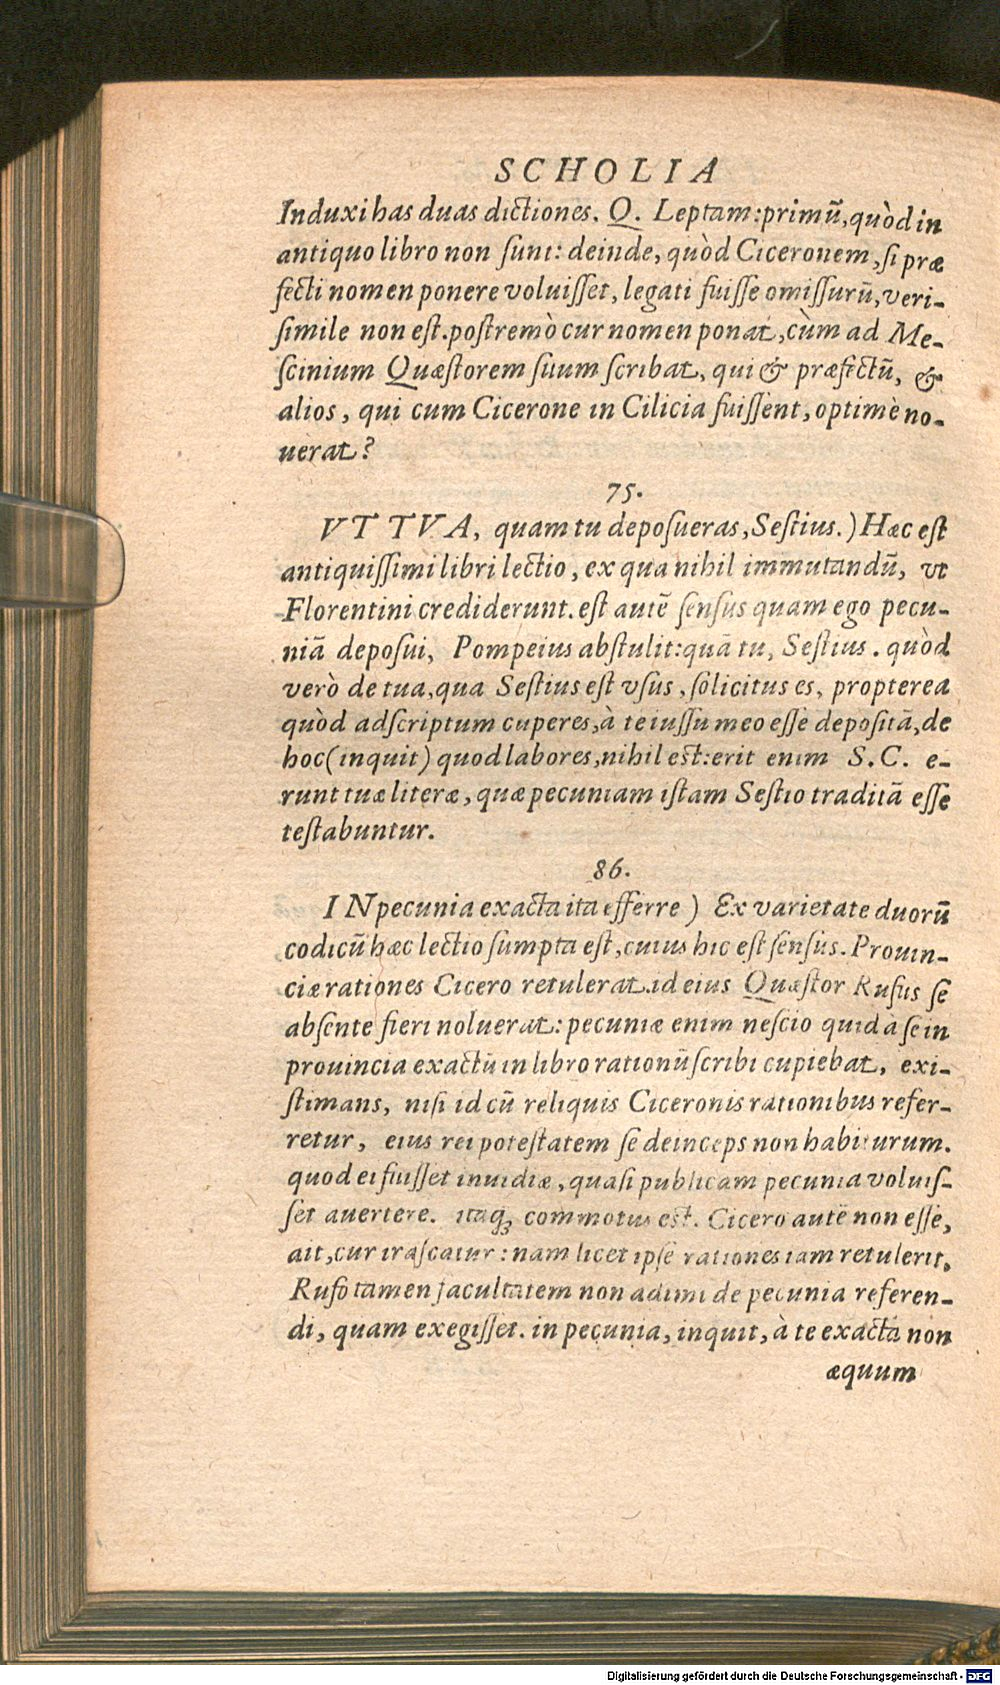 SCHOLIA
Induxi has duas dictiones. Q. Leptam: primũ, quòd in
antiquo libro non sunt: deinde, quòd Ciceronem, si præ
fecti nomen ponere voluisset, legati fuisse omissurũ, veri-
simile non est. postremò cur nomen ponat, cùm ad Me-
scinium Quæstorem suum scribat, qui & præfectũ, &
alios, qui cum Cicerone in Cilicia fuissent, optimè no-
uerat?
75.
VT TVA, quam tu deposueras, Sestius.) Hæc est
antiquissimi libri lectio, ex qua nihil immutandũ, vt
Florentini crediderunt. est autẽ sensus quam ego pecu-
niã deposui, Pompeius abstulit: quã tu, Sestius. quòd
verò de tua, qua Sestius est vsus, solicitus es, propterea
quòd adscriptum cuperes, à te iussu meo esse depositã, de
hoc (inquit) quod labores, nihil est: erit enim S.C. e-
runt tuæ literæ, quæ pecuniam istam Sestio traditã esse
testabuntur.
86.
IN pecunia exacta ita efferre) Ex varietate duorũ
codicũ hæc lectio sumpta est, cuius hic est sensus. Prouin-
ciæ rationes Cicero retulerat. id eius Quæstor Rufus se
absente fieri noluerat: pecuniæ enim nescio quid à se in
prouincia exactũ in libro rationũ scribi cupiebat, exi-
stimans, nisi id cũ reliquis Ciceronis rationibus refer-
retur, eius rei potestatem se deinceps non habiturum.
quod ei fuisset inuidiæ, quasi publicam pecunia voluis-
set auertere. itaq; commotus est. Cicero autẽ non esse,
ait, cur irascatur: nam licet ipse rationes iam retulerit,
Rufo tamen facultatem non adimi de pecunia referen-
di, quam exegisset. in pecunia, inquit, à te exacta non
æquum
Digitalisierung gefördert durch die Deutsche Forschungsgemeinschaft - DFG